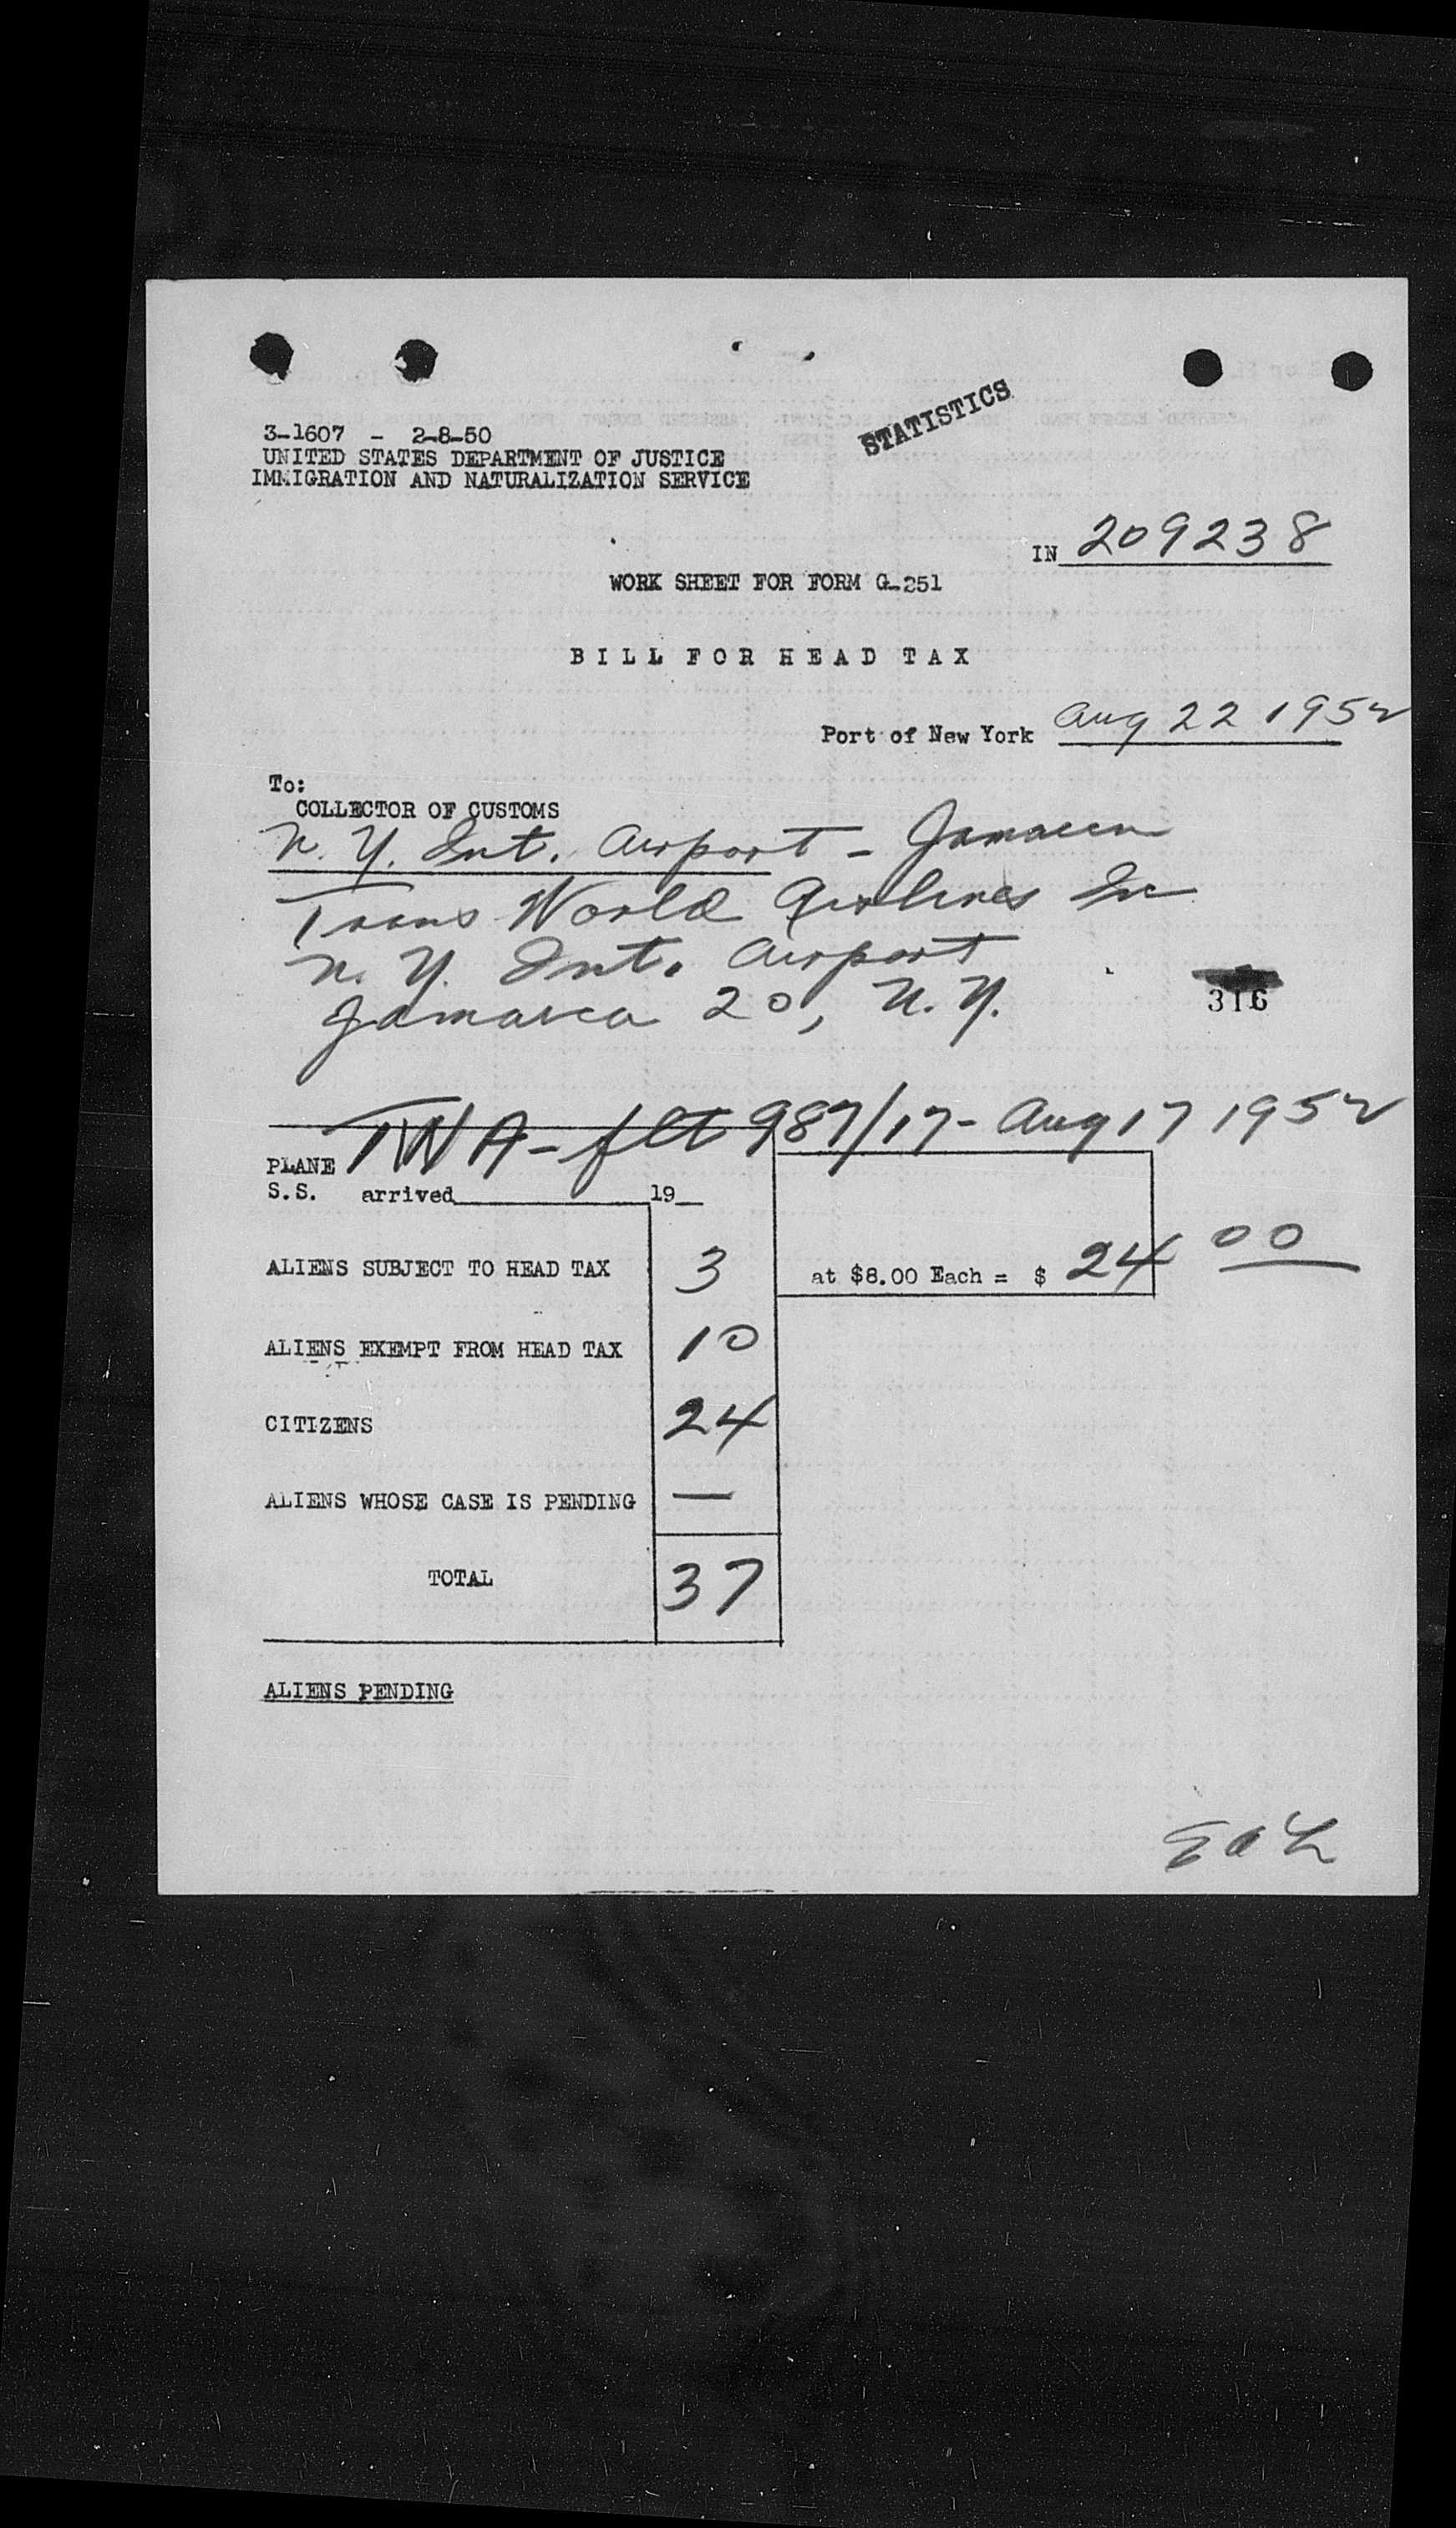 STATISTICS
3-1607 - 2-8-50
UNITED STATES DEPARTMENT OF JUSTICE
IMMIGRATION AND NATURALIZATION SERVICE
IN 209238
WORK SHEET FOR FORM G-251
BILL FOR HEAD TAX
Port of New York Aug 22 1952
To:
COLLECTOR OF CUSTOMS
N. Y. Int. Airport - Jamaica
Trans World Airlines Inc
N. Y. Int. Airport
Jamaica 20, N. Y.
316
TWA - flt 987/17 - Aug 17 1952
PLANE
S.S. arrived 19
ALIENS SUBJECT TO HEAD TAX 3 at $8.00 Each = $ 24 00
ALIENS EXEMPT FROM HEAD TAX 10
CITIZENS 24
ALIENS WHOSE CASE IS PENDING —
TOTAL 37
ALIENS PENDING